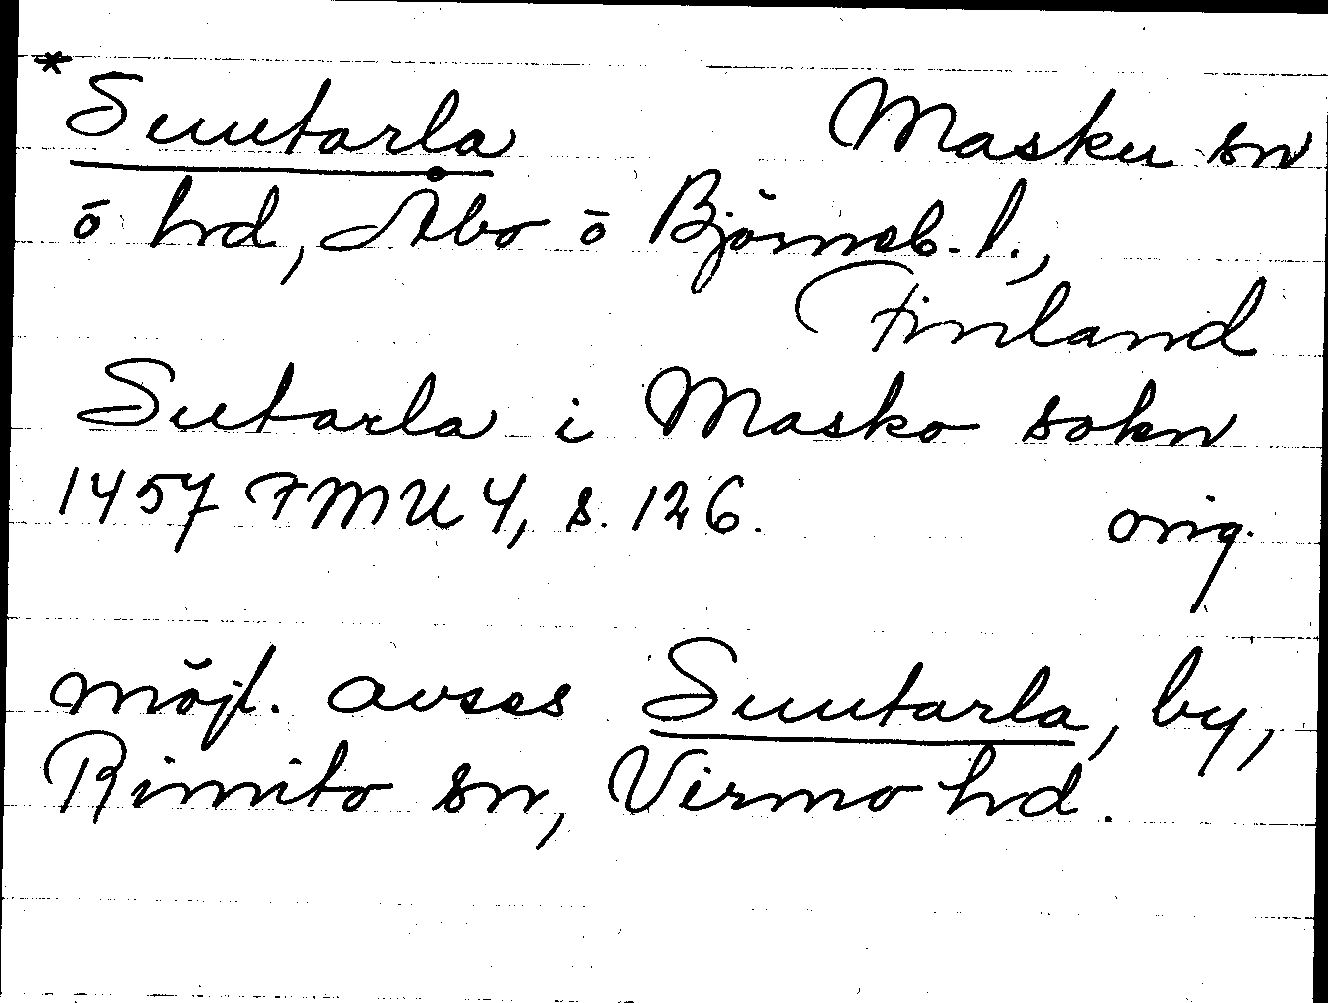 * Suutarla Masku sn
ō hd, Åbo ō Björneb. l.,
Finland
Sutarla i Masko sokn
1457 FMU 4, s. 126. orig.
möjl. avses Suutarla, by,
Rimito sn, Virmo hd.